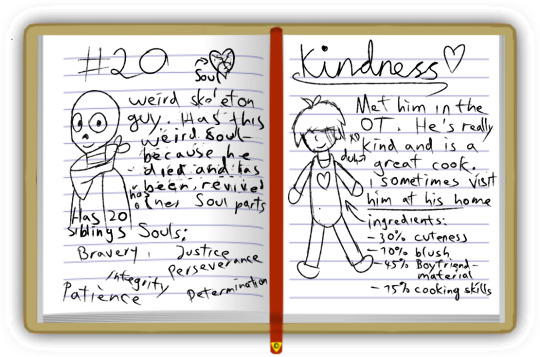 #20
Soul
weird skeleton
guy. Has this
weird soul
because he
died and has
been revived
Soul parts
Has 20
siblings
Souls:
Bravery, Justice
Perseverance
Integrity
Patience
Determination
Kindness
Met him in the
OT. He's really
kind and is a
great cook.
I sometimes visit
him at his home
ingredients:
-30% cuteness
-10% blush
-45% Boyfriend-
material
-15% cooking skills